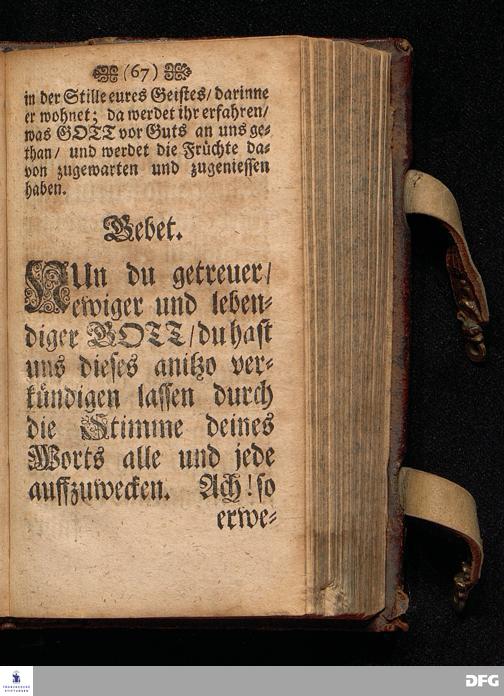 (67)
in der Stille eures Geistes/ darinne
er wohnet; da werdet ihr erfahren/
was GOTT vor Guts an uns ge-
than/ und werdet die Früchte da-
von zugewarten und zugeniessen
haben.
Gebet.
NUn du getreuer/
ewiger und leben-
diger GOTT/ du hast
uns dieses anitzo ver-
kündigen lassen durch
die Stimme deines
Worts alle und jede
auffzuwecken. Ach! so
erwe-
FRANCKESCHE
STIFTUNGEN
DFG